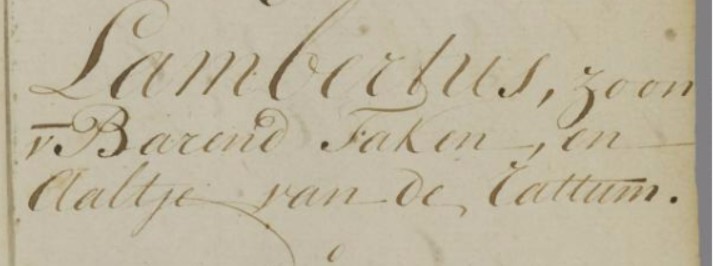 Lambertus, zoon
v Barend Faken, en
Aaltje van de Tattum.